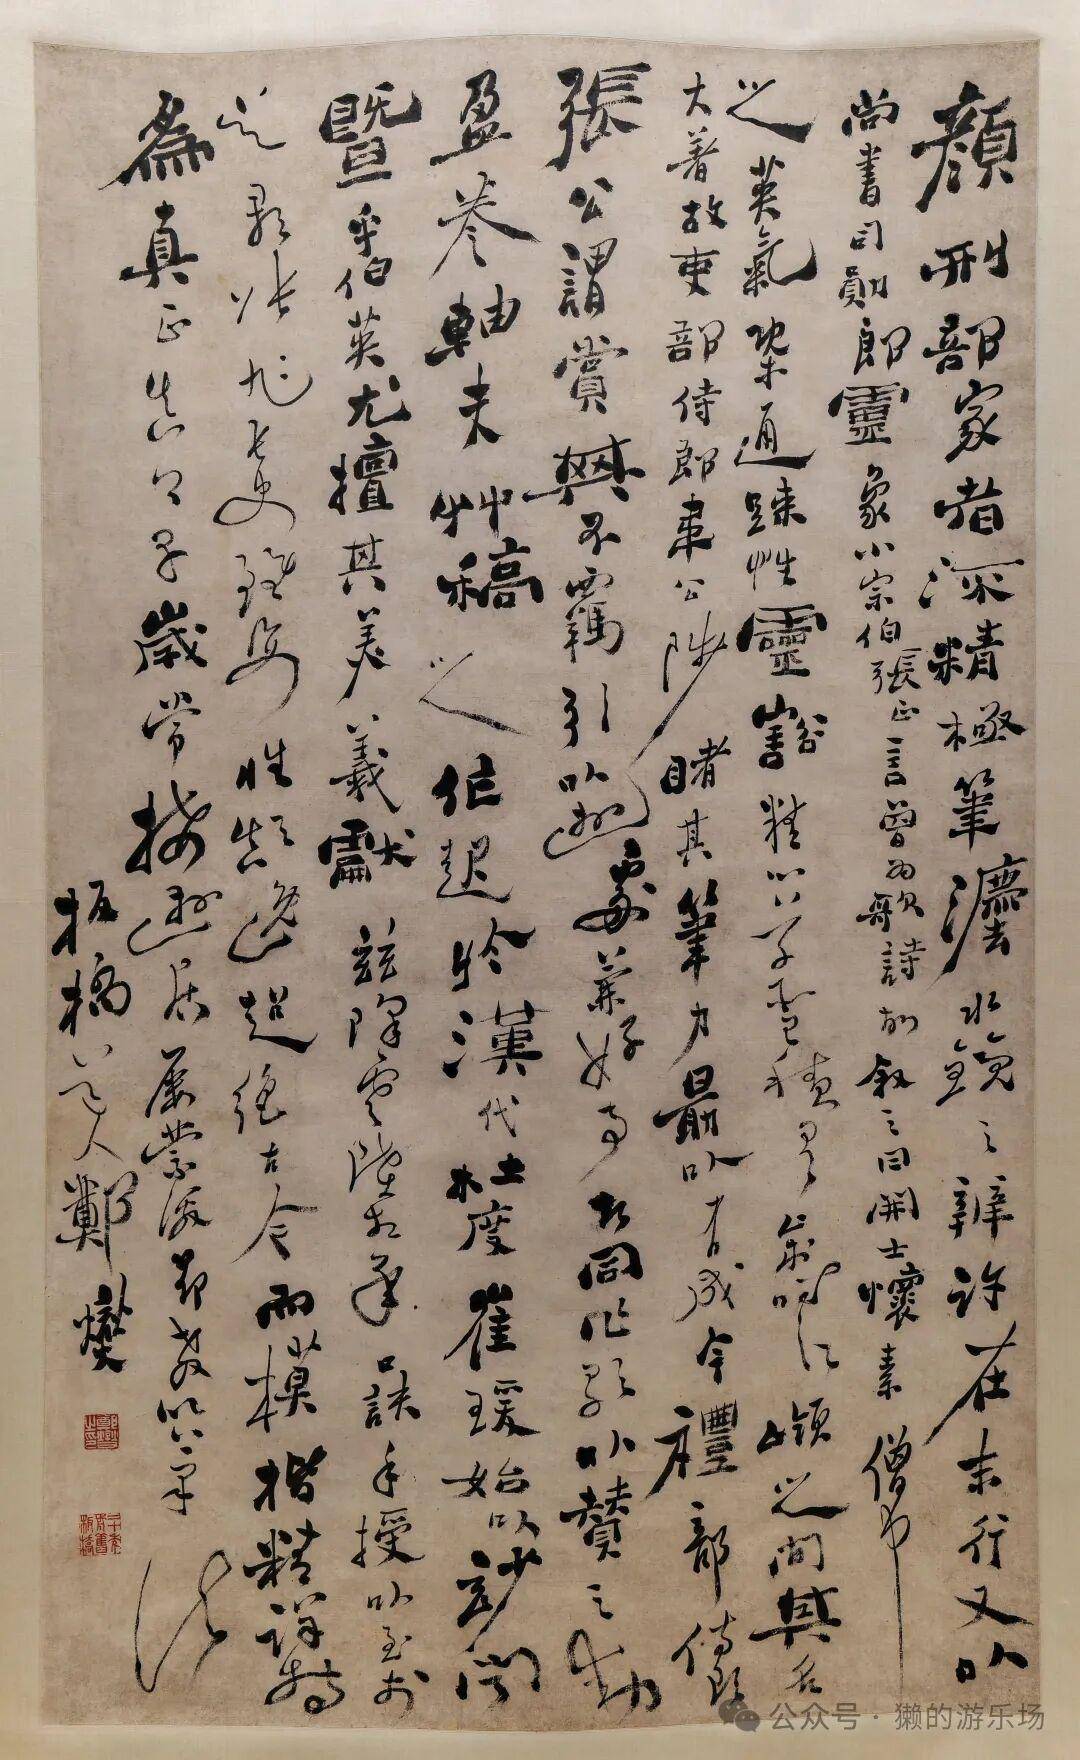 顏刑部家者流精極筆灋水鏡之辨許在末行又以
尚書司勛郎靈象小宗伯張正言曾為歌詩故叙之曰開士懷素僧中
之英氣槩通踈性靈豁精心草聖積有歲時江嶺之間其名
大著故吏部侍郎韋公陟睹其筆力最以有成今禮部侍郎
張公謂賞其不羈引以遊處兼好事者同作歌以贊之動
盈卷軸夫艸稿之作起於漢代杜度崔瑗始以妙聞
暨乎伯英尤擅其美羲獻茲降虞陸相承口訣手授以至於
吳郡張旭長史雖姿性顛逸超絕古今而模楷精詳特
為真正真卿早歲常接遊居屢蒙激昂教以筆法
板橋道人鄭燮
鄭燮之印
公众号·獭的游乐场